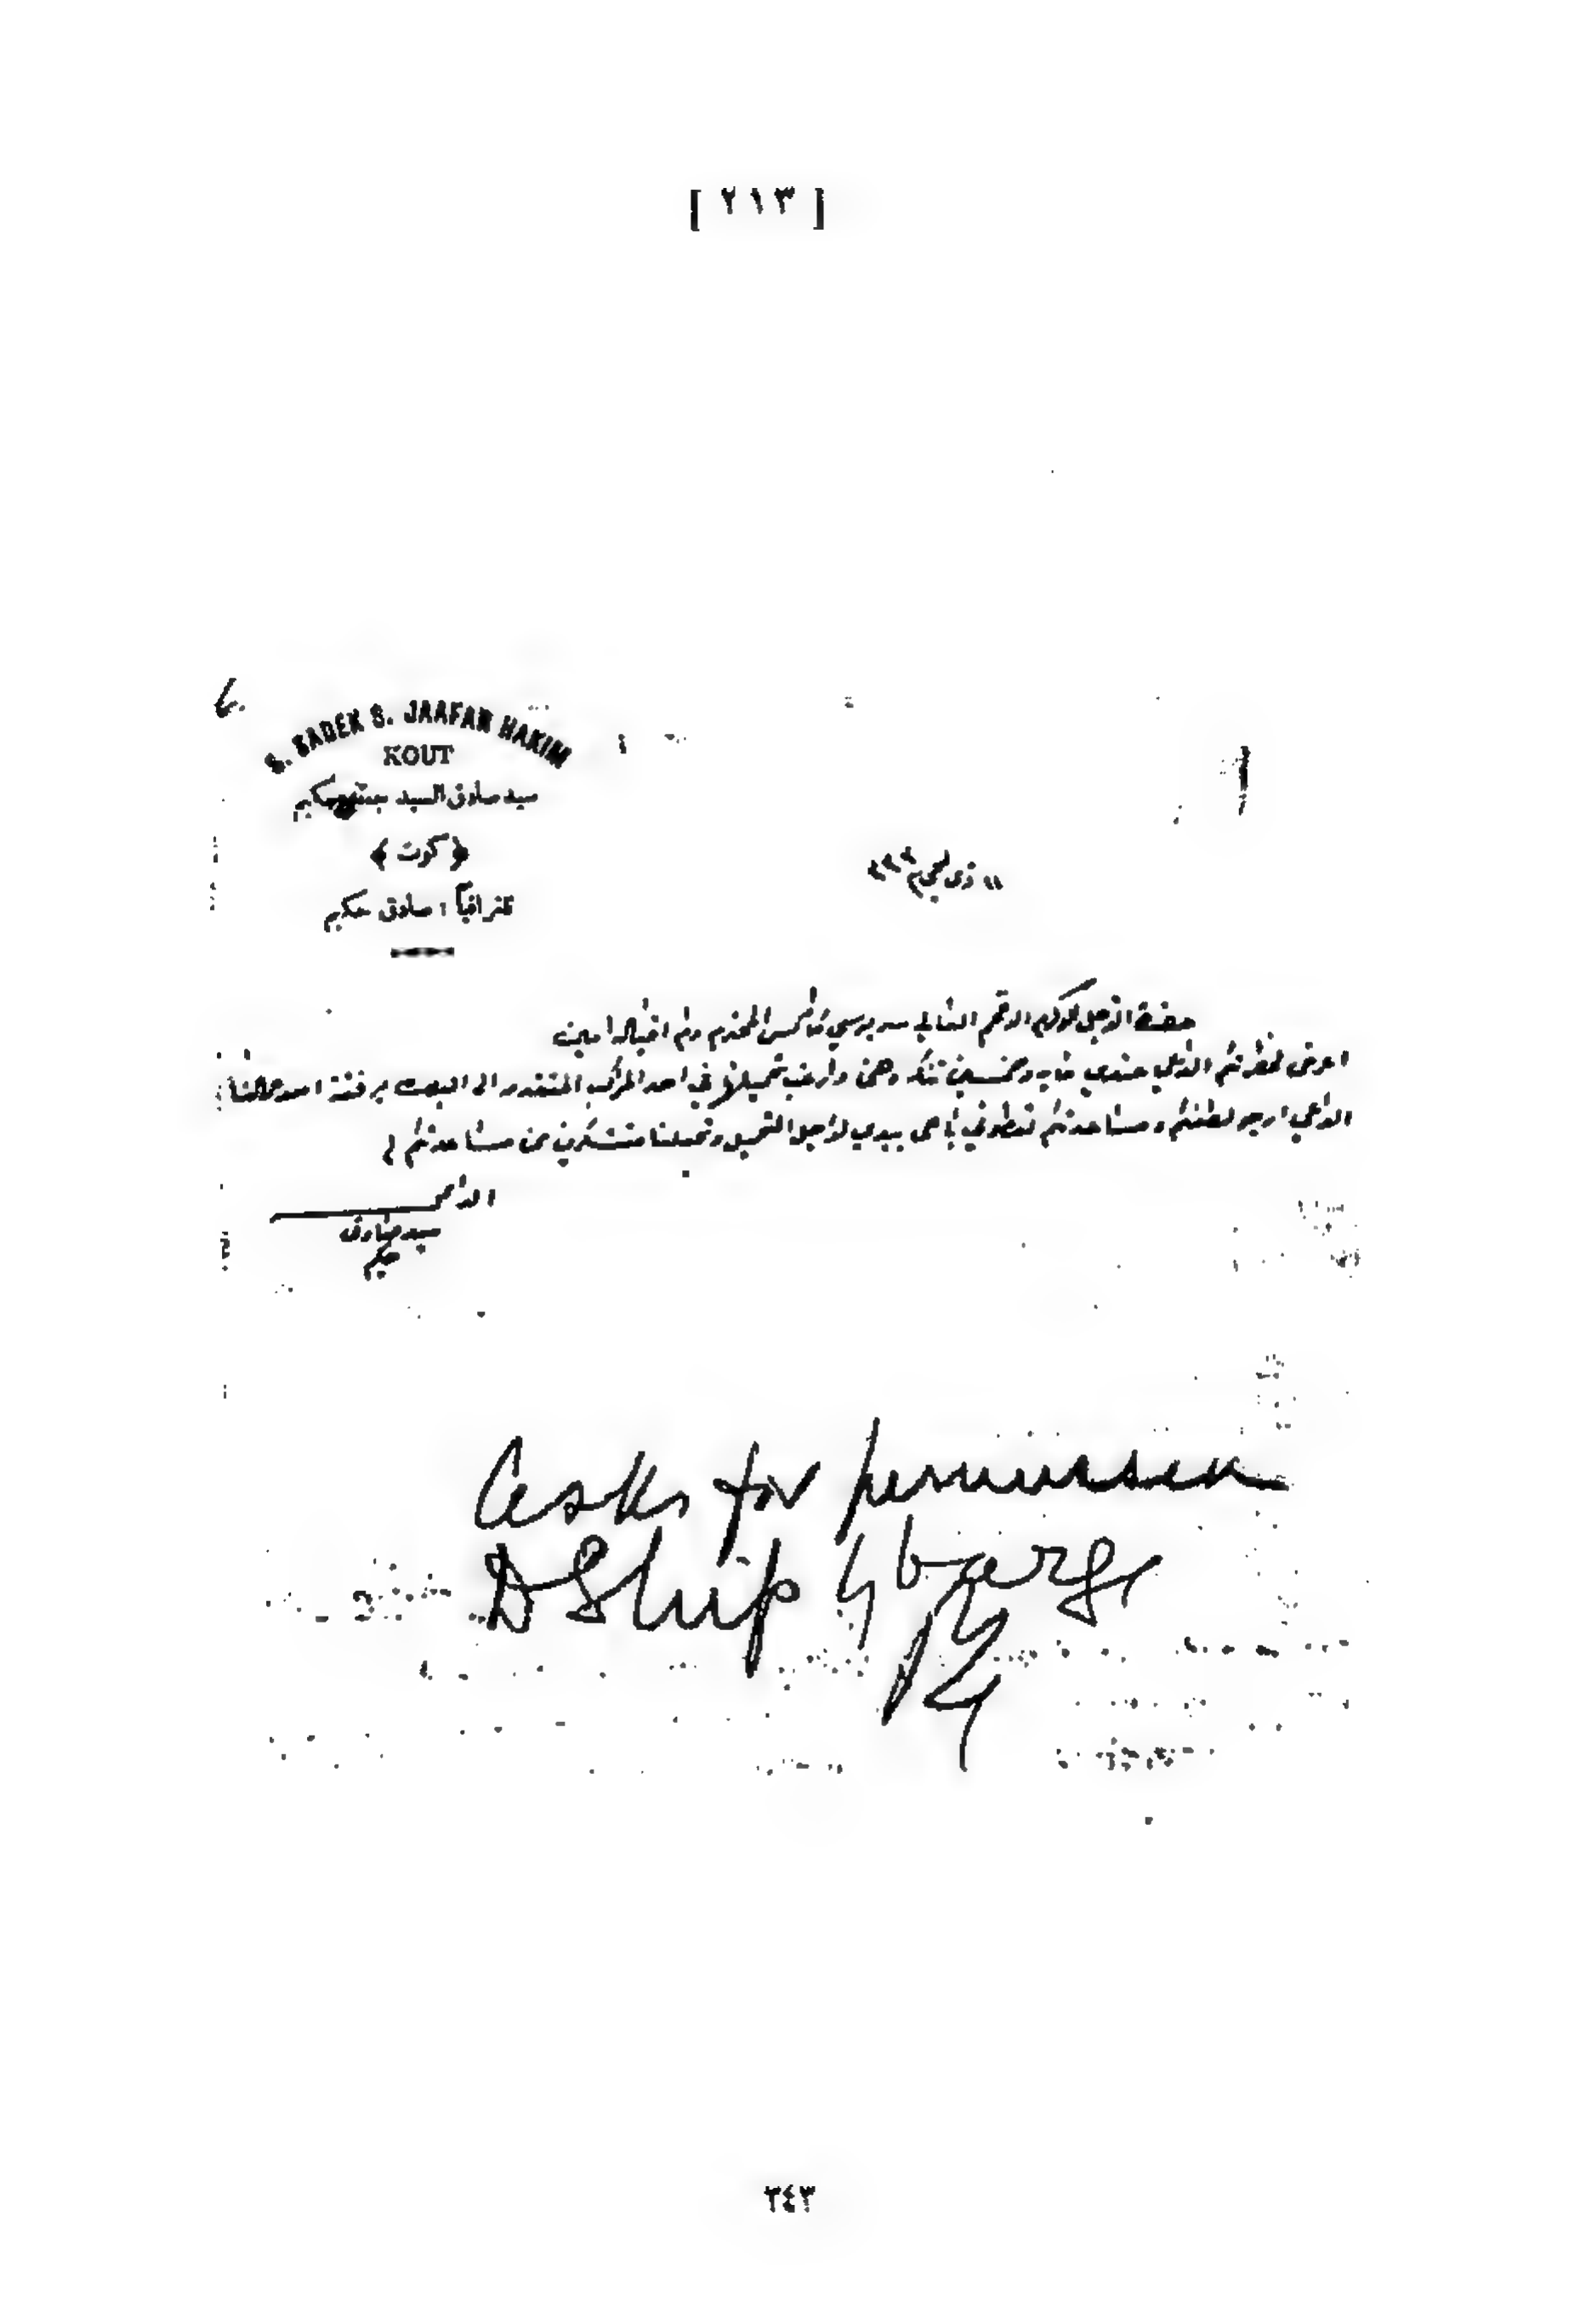 [ ٢١٣ ]
S. SADEK S. JAAFAR HAKIM
KOUT
سيد صادق السيد جعفر حكيم
﴿ كوت ﴾
تلغرافياً : صادق حكيم
١١ ذي الحجة
حضرة الاجل الاكرم الافخم العالي سر برسي كاكس المحترم دام اقباله امين
اعرض لحضرتكم الداعي عندي مايه وخمسين تنكه دهن وأرغب تحميلها في احد المراكب المتقدمه الى البصره برفقة احد عمالنا
الداعي ارجو لطفكم ومساعدتكم تعطوني بيدي لاجل التحميل وتجعلنا متشكرين من مساعدتكم لي
الداعي
سيد صادق
حكيم
Asks for permission
to Ship by barge
٣٤٣